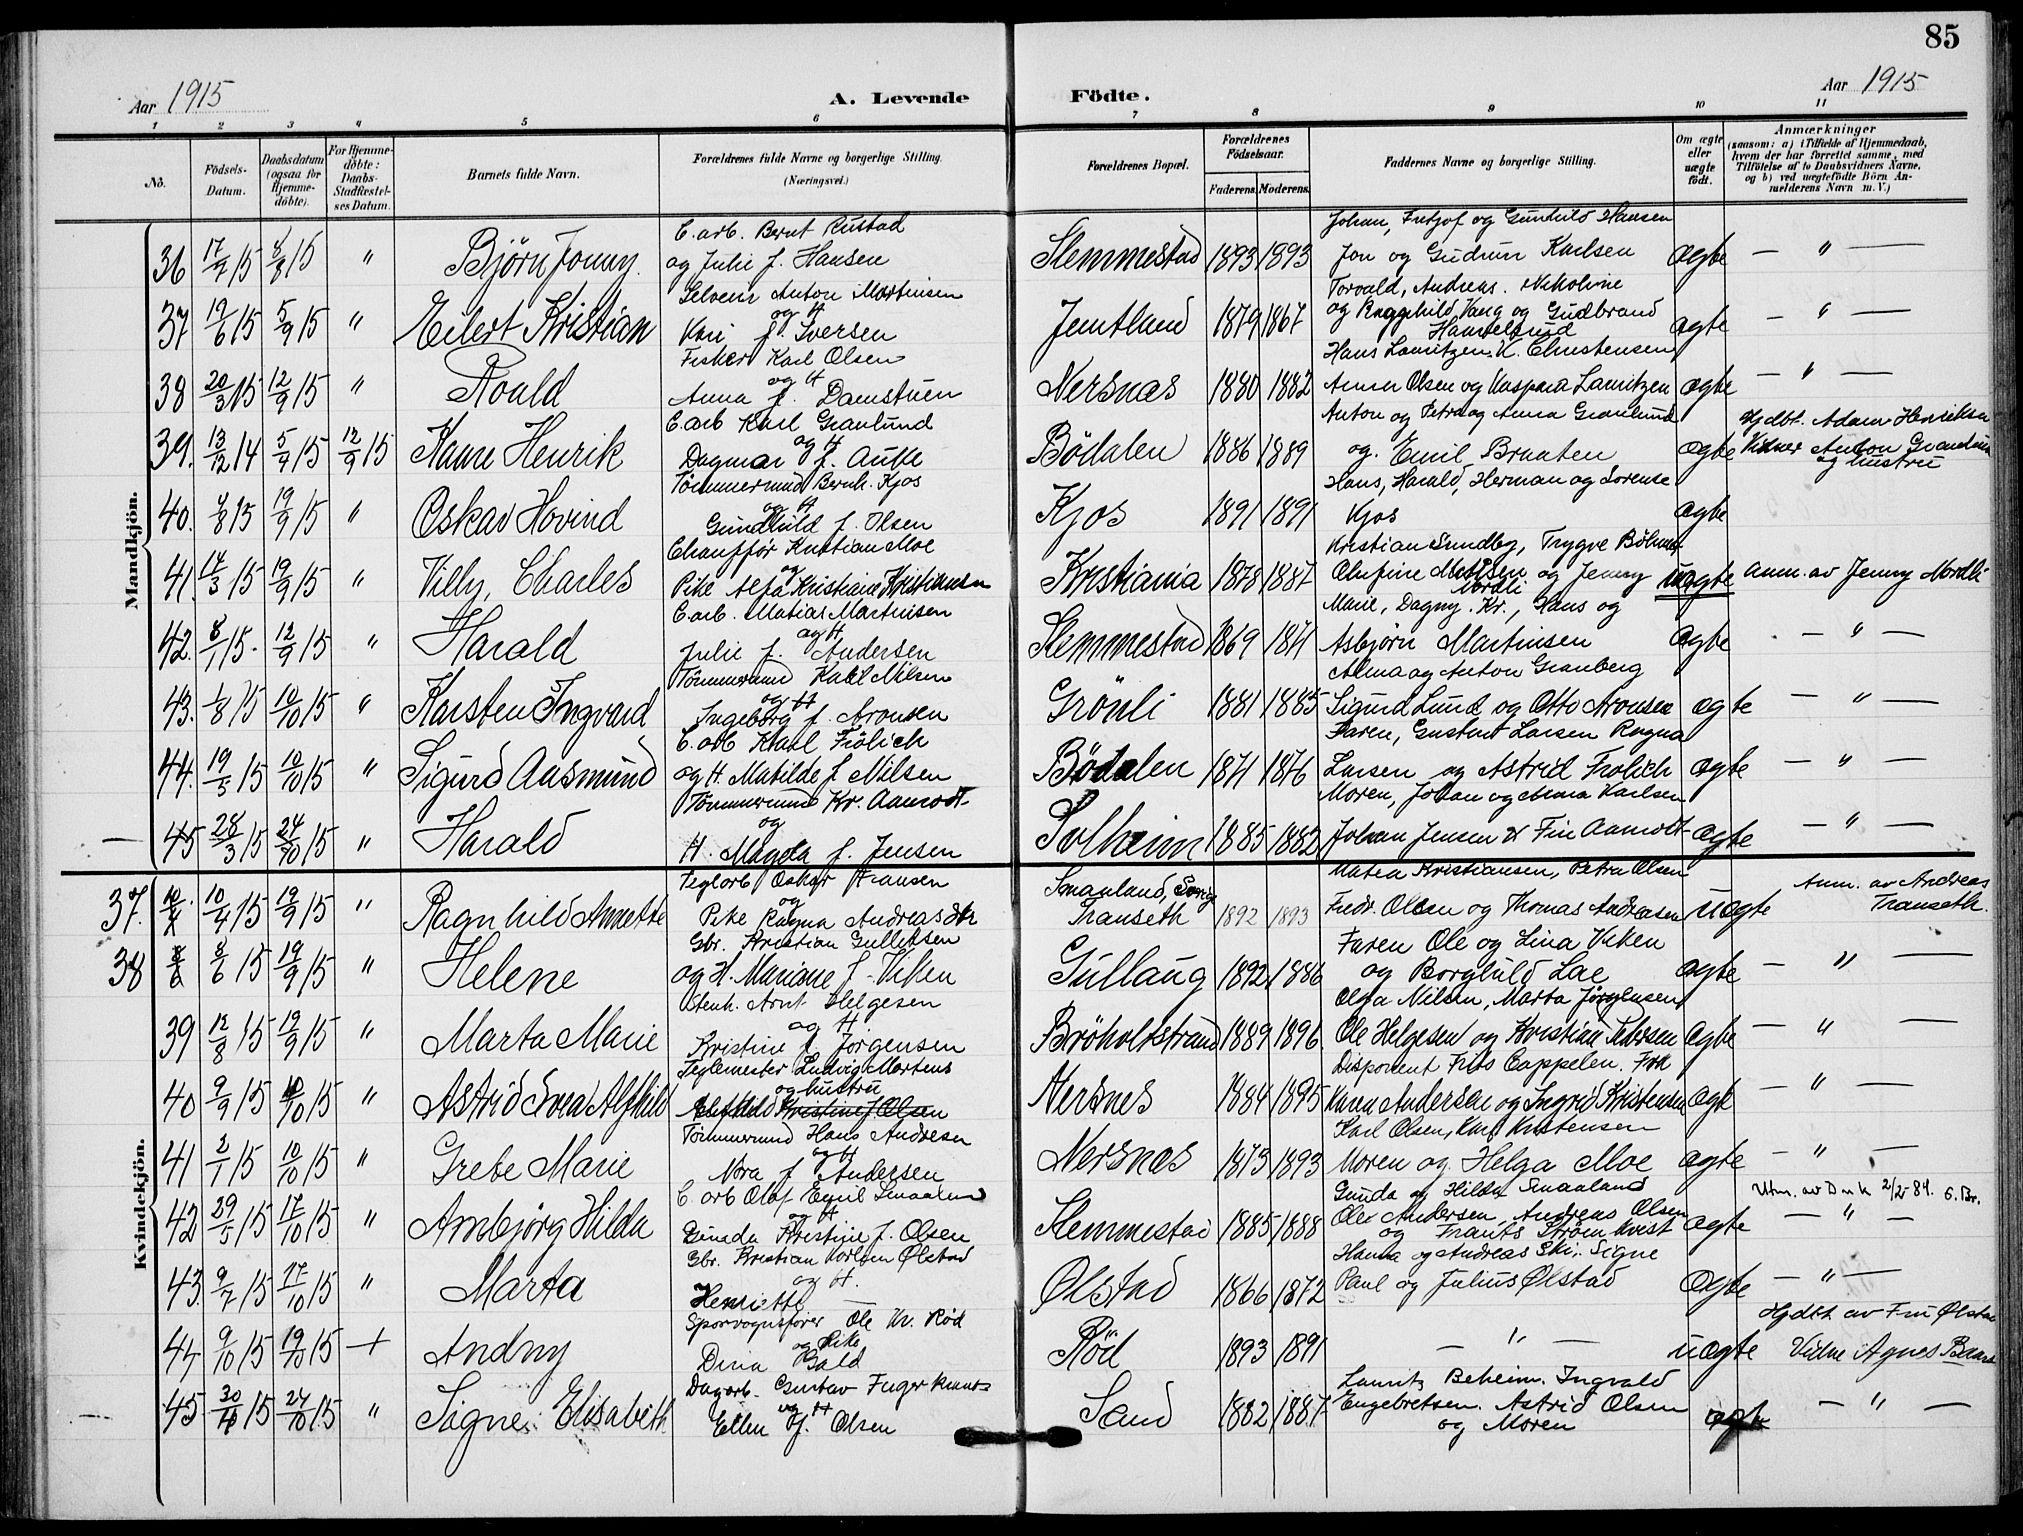 85
Aar 1915
A. Levende Födte.
Aar 1915
1 2 3 4 5 6 7 8 9 10 11
No.
Födsels-Datum.
Daabsdatum (ogsaa for Hjemme-döbte).
For Hjemme-döbte: Daabs-Stadfæstel-ses Datum.
Barnets fulde Navn.
Forældrenes fulde Navne og borgerlige Stilling. (Næringsvei.)
Forældrenes Bopæl.
Forældrenes Födselsaar.
Faderens. Moderens.
Faddernes Navne og borgerlige Stilling.
Om ægte eller uægte födt.
Anmærkninger
(saasom: a) i Tilfælde af Hjemmedaab, hvem der har forrettet samme, med Tilföielse af to Daabsvidners Navne, og b) ved uægtefödte Börn An-melderens Navn m. V.)
Mandkjön.
36 17/7 15 8/8 15 " Björn Jonny. C. arb. Bernt Rustad og Julie f. Hansen Slemmestad 1893 1893 Johan, Fritjof og Gunhild Hansen Jon og Gudrun Karlsen ægte — " —
37 19/6 15 5/9 15 " Eilert Kristian Anton Martinsen og H Kari f. Iversen Jemtland 1879 1867 Torvald, Andreas. Nikoline og Ragnhild Vang og Gudbrand ægte — " —
38 20/3 15 12/9 15 " Roald Fisker Karl Olsen og H Anna f. Damstuen Nersnæs 1880 1882 Hans Lauritzen. K. Christensen Anna Olsen og Kaspara Lauritzen ægte — " —
39. 13/12 14 5/9 15 12/9 15 Kaare Henrik C. arb Karl Granlund og H Dagmar f. Bödalen 1886 1889 Anton og Petra og Anna Granlund og. Emil Braaten ægte Hjdbt. Adam Henriksen Vidner Anton Granlund og hustru
40. 4/8 15 19/9 15 " Oskar Hovind Tömmermand Bernh. Kjos og H Gundhild f. Olsen Kjos 1891 1891 Hans, Harald, Herman og Lorense Kjos ægte
41. 14/3 15 19/9 15 " Villy, Charles Chaufför Kristian Moe og Pike Alfa Kristiane Kristiansen Kristiania 1878 1887 Kristian Sundby, Trygve Olufine og Jenny Nordli uægte anm. av Jenny Nordli
42. 8/1 15. 12/9 15 " Harald C. arb. Matias Martinsen og H. Julie f. Andersen Slemmestad 1869 1871 Marie, Dagny. Kr., Hans og Asbjörn Martinsen ægte . — " —
43. 1/8 15 10/10 15 " Karsten Ingvard Tömmermand Karl Nilsen og H Ingeborg f. Aronsen Grönli 1881 1885 Alma og Anton Granberg Sigurd Lund og Otto Aronsen ægte — " —
44. 19/5 15 10/10 15 " Sigurd Aasmund C. arb Karl Frölich og H. Matilde f Nilsen Bödalen 1871 1876 Faren, Gustav Larsen Ragna Larsen og Astrid Frolich ægte — " —
— 45 28/3 15 24/10 15 " Harald Tömmermand Kr. Aamodt og H. Magda f. Jensen Solheim 1885 1882 Moren, Johan og Anna Karlsen Johan Jensen & Fin Aamodt ægte — " —
Kvindekjön.
37. 10/4 15 19/9 15 " Ragnhild Annette Teglarb Oskar Fransen og Pike Ragna Andreasdtr Smaaland, Sverig Transeth 1892 1893 Matea Kristiansen, Petra Olsen Fredr. Olsen og Thomas Andreasen uægte Anm. av Andreas Transeth.
38 8/6 15 19/9 15 " Helene Gbr. Kristian Gulliksen og H. Mariane f. Viken Gullaug 1892 1886 Faren Ole og Lina Viken og Borghild Lae ægte — " —
39 12/8 15 19/9 15 " Marta Marie Stenh. Arnt Helgesen og H. Kristine f. Jörgensen Bröholtstrand 1889 1896 Olga Nilsen, Marta Jörgensen Ole Helgesen og Kristian ægte — " —
40 9/9 15 10/10 15 " Astrid Svea Alfhild Teglemester Ludvig Martens og hustru Alfhild Kristine f Olsen Nersnes 1884 1895 Disponent Frits Cappelen. Frk Karen Andersen og Ingrid Kristensen ægte — " —
41 2/1 15 10/10 15 " Grete Marie Tömmermand Hans Andresen og H Nora f Andersen Nersnæs 1873 1893 Karl Olsen, Karl Kristensen Moren og Helga Moe ægte — " —
42 29/5 15 17/10 15 " Arnbjörg Hilda C. arb Olaf Emil Smaaland og H Gunda Kristine f. Olsen Slemmestad 1885 1888 Gunda og Hilda Smaaland Ole Andersen, Andreas Olsen og Frants Ström Kvist ægte Utm. av D.n.k 2/2-84. — " —
43. 9/7 15 17/10 15 " Marta Gbr. Kristian Karlsen Ølstad og H. Henriette — Ølstad 1866 1872 Hanna og Andreas Ski. Signe Paul og Julius Ølstad ægte — " —
44 9/10 15 19/10 15 + Andny Sporvognsförer Ole Kr. Röd og Pike Dina Bald Röd 1893 1891 — " — uægte Hjdbt av Fru Ølstad Vidne Agnes
45 30/ 15 24/10 15 " Signe Elisabeth Dagarb. Gustav og H Ellen f. Olsen Sand 1882 1887 Laurits Beheim. Ingvald Engebretsen. Astrid Olsen og Moren ægte — " —